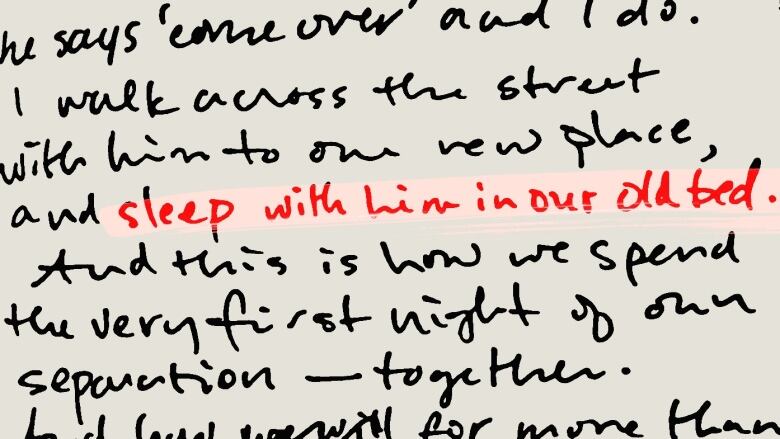 he says 'come over' and I do.
I walk across the street
with him to our new place,
and sleep with him in our old bed.
And this is how we spend
the very first night of our
separation — together.
will for more than